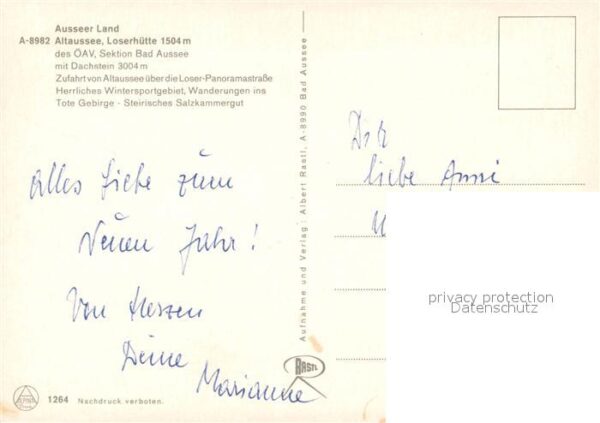 Ausseer Land
A-8982 Altaussee, Loserhütte 1504 m
des ÖAV, Sektion Bad Aussee
mit Dachstein 3004 m
Zufahrt von Altaussee über die Loser-Panoramastraße
Herrliches Wintersportgebiet, Wanderungen ins
Tote Gebirge - Steirisches Salzkammergut
Alles Liebe zum
Neuen Jahr!
Von Herzen
Deine
Marianne
1264 Nachdruck verboten.
Aufnahme und Verlag: Albert Rastl, A-8990 Bad Aussee
RASTL
Dir
liebe Anni
privacy protection
Datenschutz